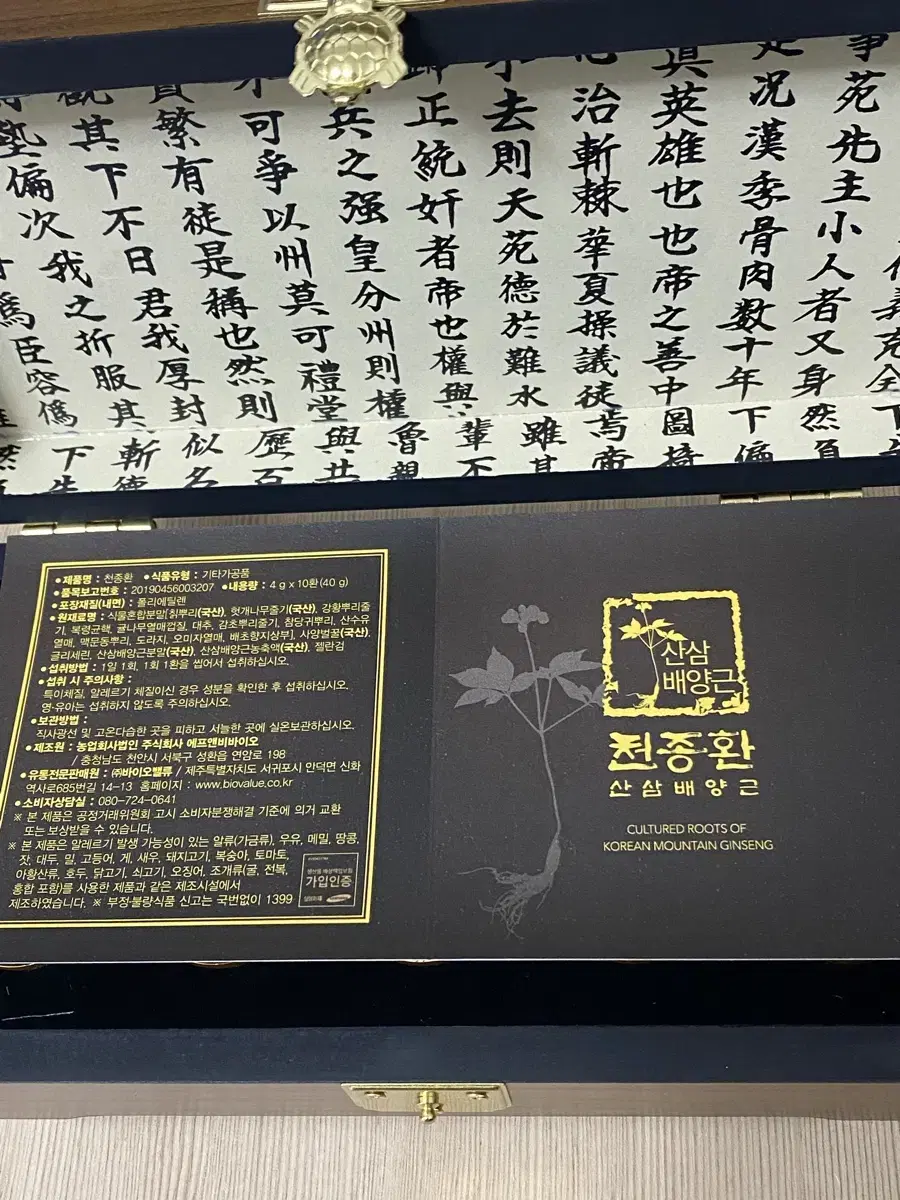 義克全下
爭苑先主小人者又身然負
況漢季骨肉数十年下偏
真英雄也也帝之善中圖持
治斬棘華夏操議徒焉帝
去則天苑德於難水雖其
正統奸者帝也權與輩不
兵之强皇分州則權魯親
不可爭以州莫可禮堂與共
繁有徒是稱也然則歷百
觀其下不日君我厚封似名
偏次我之折服其斬德
爲臣容僞下
•제품명 : 천종환 •식품유형 : 기타가공품
•품목보고번호 : 20190456003207 •내용량 : 4 g x 10환(40 g)
•포장재질(내면) : 폴리에틸렌
•원재료명 : 식물혼합분말[칡뿌리(국산), 헛개나무줄기(국산), 강황뿌리줄
기, 복령균핵, 귤나무열매껍질, 대추, 감초뿌리줄기, 참당귀뿌리, 산수유
열매, 맥문동뿌리, 도라지, 오미자열매, 배초향지상부], 사양벌꿀(국산),
글리세린, 산삼배양근분말(국산), 산삼배양근농축액(국산), 젤란검
•섭취방법 : 1일 1회, 1회 1환을 씹어서 섭취하십시오.
•섭취 시 주의사항 :
특이체질, 알레르기 체질이신 경우 성분을 확인한 후 섭취하십시오.
영·유아는 섭취하지 않도록 주의하십시오.
•보관방법 :
직사광선 및 고온다습한 곳을 피하고 서늘한 곳에 실온보관하십시오.
•제조원 : 농업회사법인 주식회사 에프앤비바이오
/ 충청남도 천안시 서북구 성환읍 연암로 198
•유통전문판매원 : ㈜바이오밸류 / 제주특별자치도 서귀포시 안덕면 신화
역사로685번길 14-13 홈페이지 : www.biovalue.co.kr
•소비자상담실 : 080-724-0641
※ 본 제품은 공정거래위원회 고시 소비자분쟁해결 기준에 의거 교환
또는 보상받을 수 있습니다.
※ 본 제품은 알레르기 발생 가능성이 있는 알류(가금류), 우유, 메밀, 땅콩,
잣, 대두, 밀, 고등어, 게, 새우, 돼지고기, 복숭아, 토마토,
아황산류, 호두, 닭고기, 쇠고기, 오징어, 조개류(굴, 전복,
홍합 포함)를 사용한 제품과 같은 제조시설에서
제조하였습니다. ※ 부정·불량식품 신고는 국번없이 1399
가입인증
산삼
배양근
천종환
산삼배양근
CULTURED ROOTS OF
KOREAN MOUNTAIN GINSENG